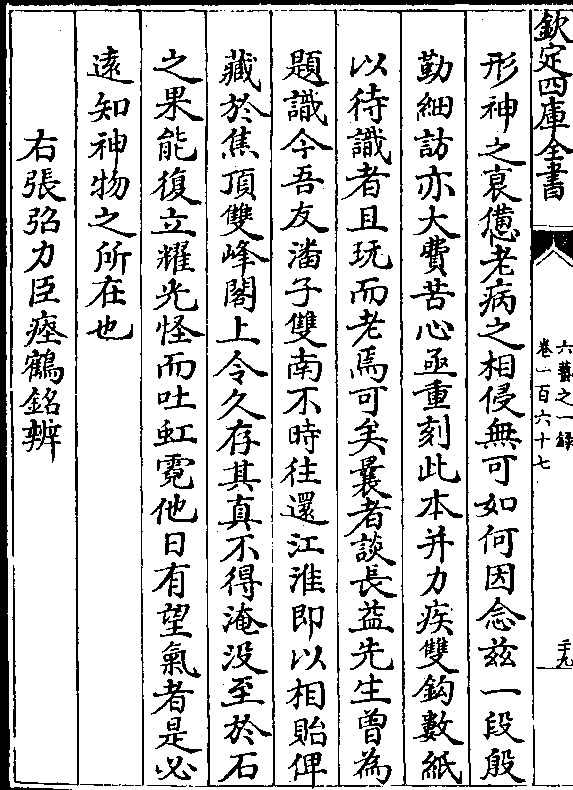 欽定四庫全書
六藝之一録
卷一百六十七
三九
形神之衰憊老病之相侵無可如何因念兹一段殷
勤細訪亦大費苦心亟重刻此本并力疾雙鈎數紙
以待識者且玩而老焉可矣曩者談長益先生曾為
題識今吾友潘子雙南不時往還江淮即以相貽俾
藏於焦頂雙峰閣上令久存其真不得淹没至於石
之果能復立耀光怪而吐虹霓他日有望氣者是必
遠知神物之所在也
右張弨力臣瘞鶴銘辨